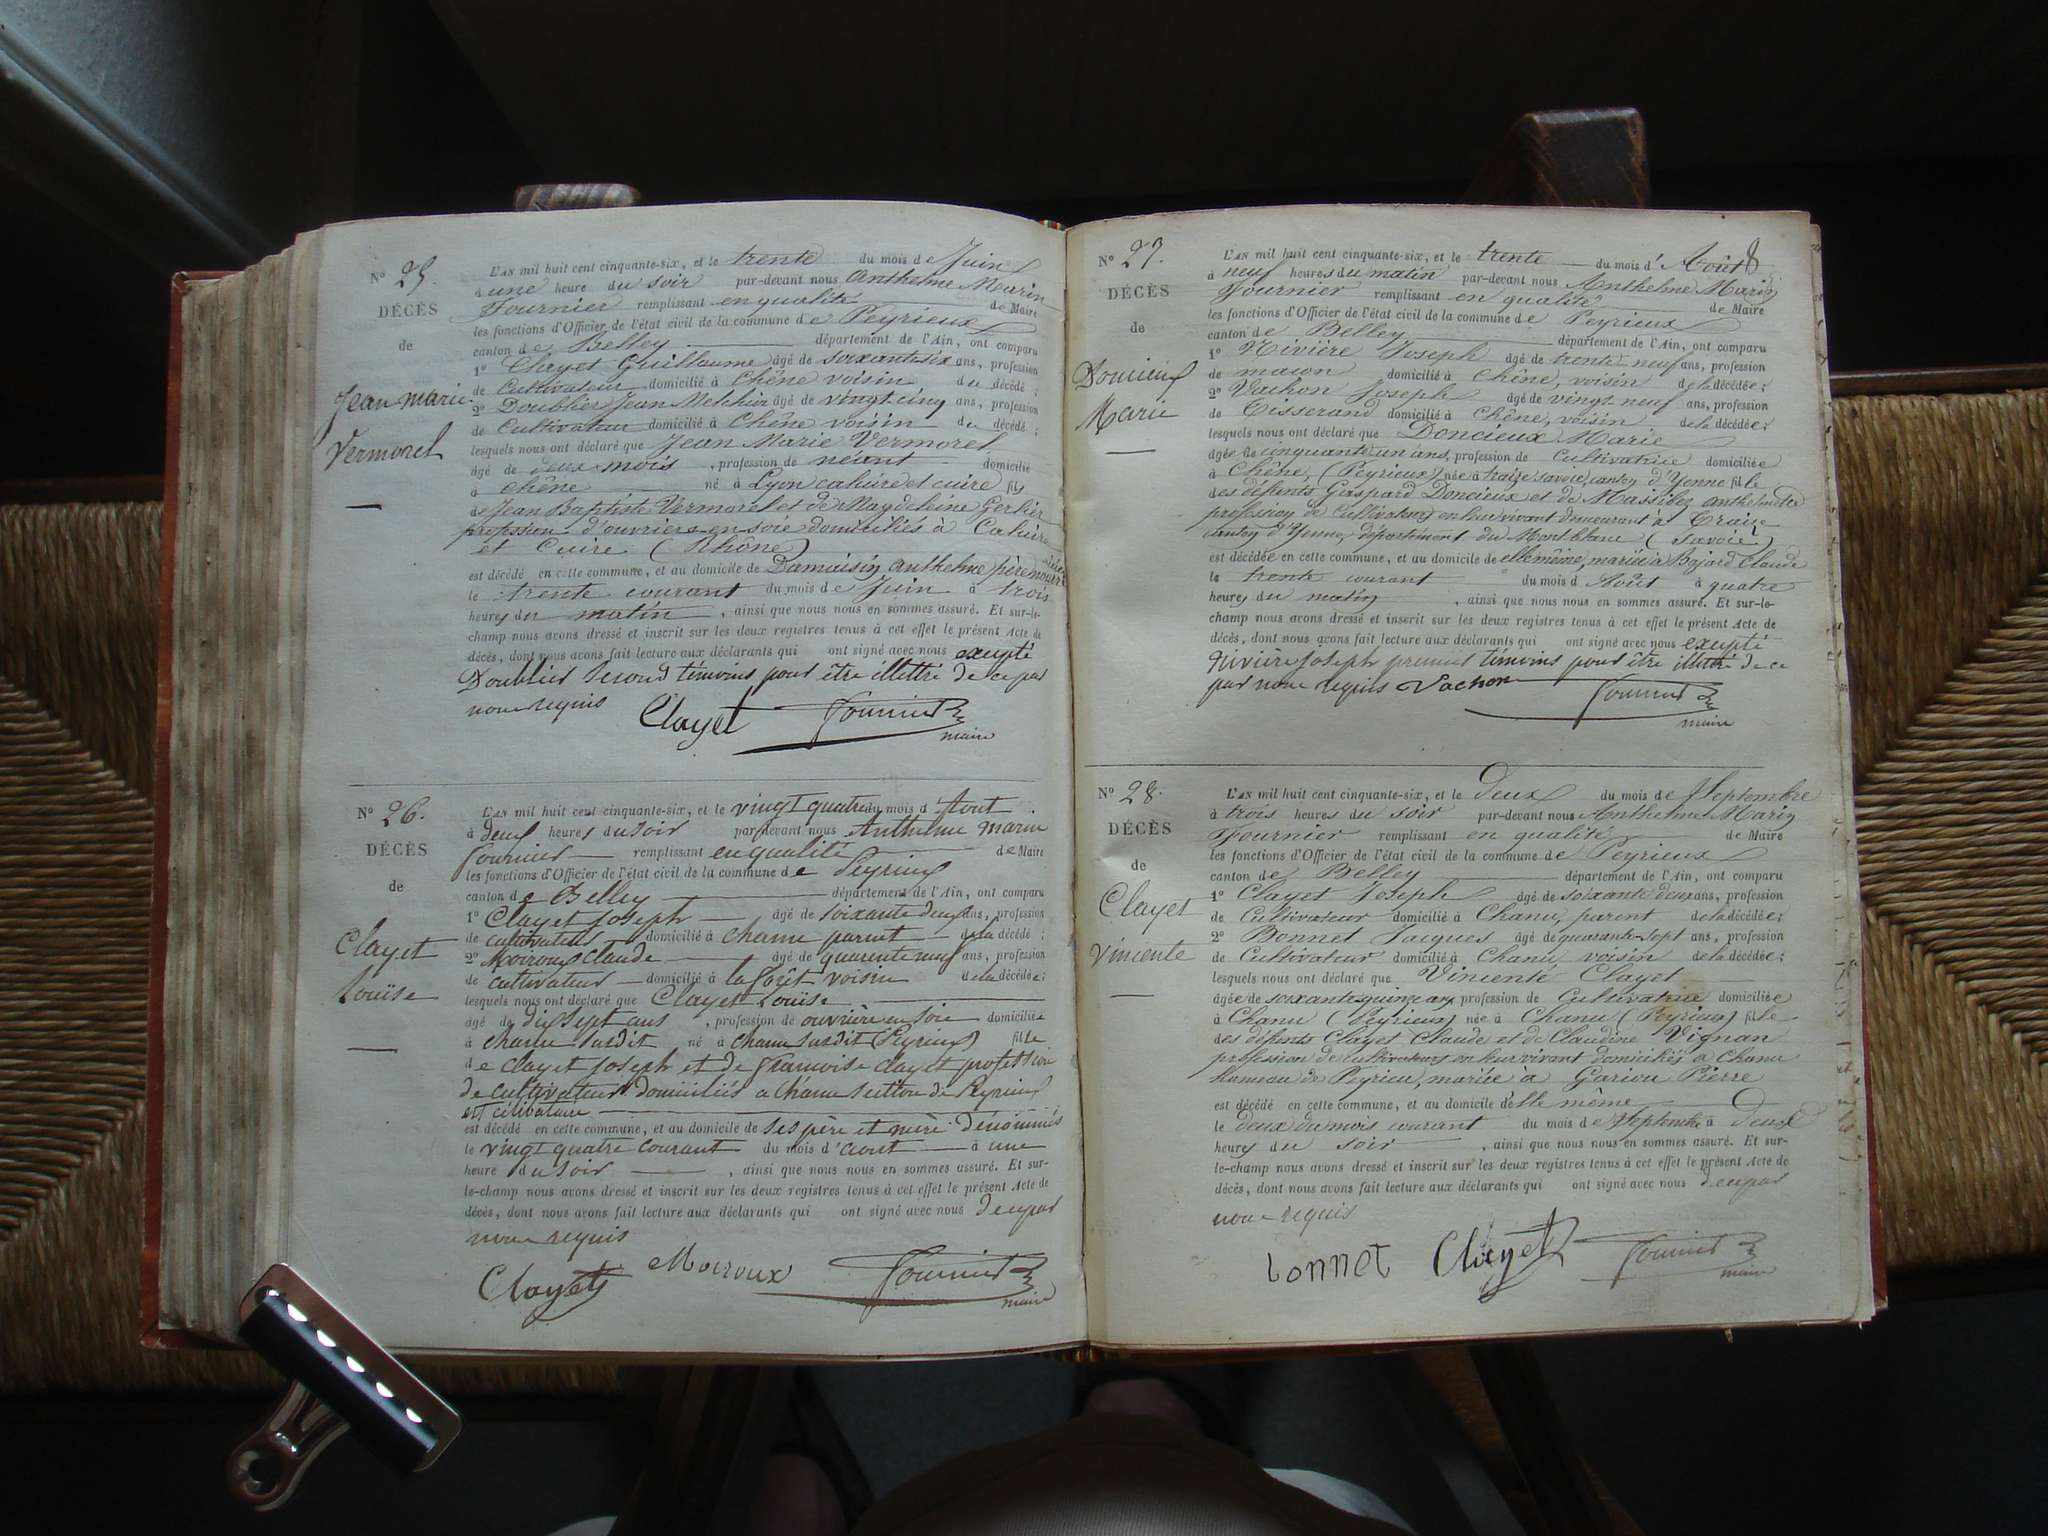 Nº 25.
DÉCÈS
de
Jean marie
Vermorel
L'AN mil huit cent cinquante-six, et le trente du mois de Juin
à une heure du soir par-devant nous Anthelme Marin
Fournier remplissant en qualité de Maire
les fonctions d'Officier de l'état civil de la commune de Peyrieux
canton de Belley département de l'Ain, ont comparu
1º Clayet Guillaume âgé de soixante six ans, profession
de Cultivateur domicilié à Chêne voisin du décédé
2º Doublier Jean Melchior âgé de vingt cinq ans, profession
de Cultivateur domicilié à Chêne voisin du décédé ;
lesquels nous ont déclaré que Jean Marie Vermorel
âgé de deux mois , profession de néant domicilié
à Chêne né à Lyon cahuire et cuire fils
de Jean Baptiste Vermorel et de Magdeleine Gerlier
profession d'ouvriers en soie domiciliés à Cahuire
et Cuire (Rhône)
est décédé en cette commune, et au domicile de Damaisin anthelme père nourricier
le trente courant du mois de Juin à trois
heures du matin , ainsi que nous nous en sommes assuré. Et sur-le-
champ nous avons dressé et inscrit sur les deux registres tenus à cet effet le présent Acte de
décès, dont nous avons fait lecture aux déclarants qui ont signé avec nous excepté
Doublier second témoins pour être illettré de ce par
nous requis Clayet Fournier
maire
Nº 26.
DÉCÈS
de
Clayet
Louïse
L'AN mil huit cent cinquante-six, et le vingt quatre du mois d'Aout
à deux heures du soir par-devant nous Anthelme marin
Fournier remplissant en qualité de Maire
les fonctions d'Officier de l'état civil de la commune de Peyrieux
canton de Belley département de l'Ain, ont comparu
1º Clayet Joseph âgé de soixante deux ans, profession
de cultivateur domicilié à chanu parent de la décédé ;
2º Moiroux Claude âgé de quarente neuf ans, profession
de cultivateur domicilié à la forêt voisin de la décédée ;
lesquels nous ont déclaré que Clayet Louïse
âgé de dix sept ans , profession de ouvrière en soie domiciliée
à chanu susdit né à chanu susdit (Peyrieux) fille
de clayet Joseph et de françoise clayet profession
de cultivateur domiciliés a chanu section de Peyrieux
est célibataire
est décédé en cette commune, et au domicile de ses père et mère dénommés
le vingt quatre courant du mois d'aout à une
heure du soir , ainsi que nous nous en sommes assuré. Et sur-
le-champ nous avons dressé et inscrit sur les deux registres tenus à cet effet le présent Acte de
décès, dont nous avons fait lecture aux déclarants qui ont signé avec nous de ce par
nous requis
Clayet Moiroux Fournier
maire
8
Nº 27.
DÉCÈS
de
Doncieux
Marie
L'AN mil huit cent cinquante-six, et le trente du mois d'Août
à neuf heures du matin par-devant nous Anthelme Marin
Fournier remplissant en qualité de Maire
les fonctions d'Officier de l'état civil de la commune de Peyrieux
canton de Belley département de l'Ain, ont comparu
1º Rivière Joseph âgé de trente-neuf ans, profession
de maçon domicilié à Chêne, voisin de la décédée ;
2º Vachon Joseph âgé de vingt neuf ans, profession
de Tisserand domicilié à Chêne, voisin de la décédée ;
lesquels nous ont déclaré que Doncieux Marie
âgée de cinquante un ans, profession de Cultivatrice domiciliée
à Chêne, (Peyrieux) née à traize savoie, canton d'Yenne fille
des défents Gaspard Doncieux et de Massibez anthelmette
profession de Cultivateurs en leur vivant demeurant à Traise
canton d'Yenne, département du Montblanc (Savoie)
est décédée en cette commune, et au domicile de elle même, mariée à Bajard Claude
le trente courant du mois d'Août à quatre
heures du matin , ainsi que nous nous en sommes assuré. Et sur-le-
champ nous avons dressé et inscrit sur les deux registres tenus à cet effet le présent Acte de
décès, dont nous avons fait lecture aux déclarants qui ont signé avec nous excepté
Rivière Joseph premier témoins pour être illettré de ce
par nous requis Vachon Fournier
maire
Nº 28.
DÉCÈS
de
Clayet
Vincente
L'AN mil huit cent cinquante-six, et le deux du mois de Septembre
à trois heures du soir par-devant nous Anthelme Marin
Fournier remplissant en qualité de Maire
les fonctions d'Officier de l'état civil de la commune de Peyrieux
canton de Belley département de l'Ain, ont comparu
1º Clayet Joseph âgé de soixante deux ans, profession
de Cultivateur domicilié à Chanu, parent de la décédée ;
2º Bonnet Jacques âgé de quarante-sept ans, profession
de Cultivateur domicilié à Chanu voisin de la décédée ;
lesquels nous ont déclaré que Vincente Clayet
âgée de soixante quinze ans, profession de Cultivatrice domiciliée
à Chanu (Peyrieux) née à Chanu (Peyrieux) fille
des défents Clayet Claude et de Claudine Vignan
profession de cultivateurs en leur vivant domiciliés à Chanu
hameau de Peyrieu, mariée à Gariou Pierre
est décédé en cette commune, et au domicile d'elle même
le deux du mois courant du mois de Septembre à deux
heures du soir , ainsi que nous nous en sommes assuré. Et sur-
le-champ nous avons dressé et inscrit sur les deux registres tenus à cet effet le présent Acte de
décès, dont nous avons fait lecture aux déclarants qui ont signé avec nous de ce par
nous requis
bonnet Clayet Fournier
maire